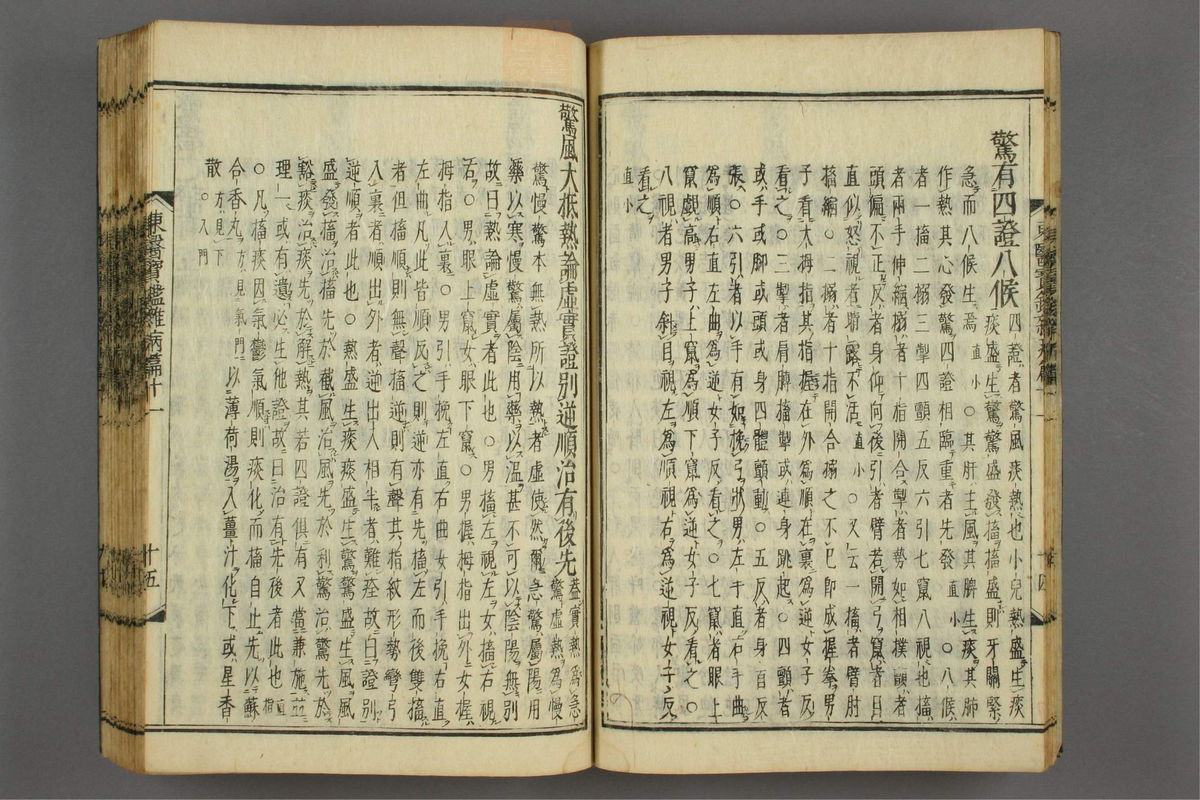 驚有四證八候 四證者驚風痰熱也小兒熱盛生痰
痰盛生驚驚盛發搐搐盛則牙關緊
急而八候生焉直小○其肝主風其脾生痰其肺
作熱其心發驚四證相臨重者先發直小○八候
者一搐二搦三掣四顫五反六引七竄八視也搐
者兩手伸縮搦者十指開合掣者勢如相撲顫者
頭偏不正反者身仰向後引者臂若開弓竄者目
直似怒視者睛露不活直小○又云一搐者臂肘
搐縮○二搦者十指開合搦之不已即成握拳男
子看之大拇指其指握在外為順在裏為逆女子反
看之○三掣者肩膊搐掣或連身跳起○四顫者
或手或脚或頭或身四體顫動○五反者身百反
張○六引者以手有如挽弓狀男左手直右手曲
為順右直左曲為逆女子反看之○七竄者眼上
竄覷高男子上竄為順下竄為逆女子反看之○
八視者男子斜目視左為順視右為逆視女子反
看之直小
十四
驚風大抵熱論虛實證別逆順治有後先 蓋實熱為急
驚虛熱為慢
驚慢驚本無熱所以熱者虛使然爾急驚屬陽用
藥以寒慢驚屬陰用藥以溫甚不可以陰陽無別
故曰熱論虛實者此也○男搐左視左女搐右視
右○男眼上竄女眼下竄○男握拇指出外女握
拇指入裏○男引手挽左直右曲女引手挽右直
左曲凡此皆順反之則逆亦有先搐左而後雙搐
者但搐順則無聲搐逆則有聲其指紋形勢彎弓
入裏者順出外者逆出入相半者難痊故曰證別
逆順者此也○熱盛生痰痰盛生驚驚盛生風風
盛發搐治搐先於截風治風先於利驚治驚先於
豁痰治痰先於解熱其若四證俱有又當兼施並
理一或有遺必生他證故曰治有先後者此也直指
○凡搐痰因氣鬱氣順則痰化而搐自止先以蘇
合香丸方見氣門以薄荷湯入薑汁化下或星香
散方見下○入門
東醫寶鑑雜病篇十一
十五